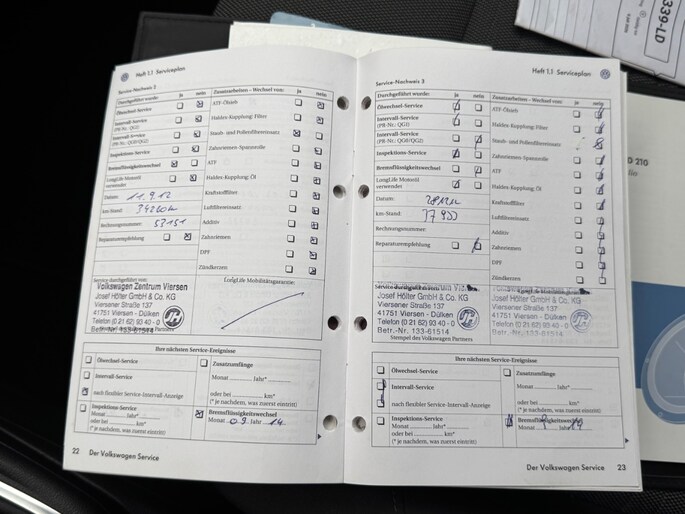 339-LD
Heft 1.1 Serviceplan
Service-Nachweis 2
Durchgeführt wurde: ja nein
Ölwechsel-Service
Intervall-Service
(PR-Nr.: QG1)
Intervall-Service
(PR-Nr.: QG0/QG2)
Inspektions-Service
Bremsflüssigkeitswechsel
LongLife Motoröl
verwendet
Datum: 11.9.12
km-Stand:
Rechnungsnummer: 53151
Reparaturempfehlung
Zusatzarbeiten - Wechsel von: ja nein
ATF-Ölsieb
Haldex-Kupplung: Filter
Staub- und Pollenfiltereinsatz
Zahnriemen-Spannrolle
ATF
Haldex-Kupplung: Öl
Kraftstofffilter
Luftfiltereinsatz
Additiv
Zahnriemen
DPF
Zündkerzen
Service durchgeführt von:
LongLife Mobilitätsgarantie:
Volkswagen Zentrum Viersen
Josef Hölter GmbH & Co. KG
Viersener Straße 137
41751 Viersen - Dülken
Telefon (0 21 62) 93 40 - 0
Betr.-Nr. 133-61514
Ihre nächsten Service-Ereignisse
Ölwechsel-Service
Intervall-Service
nach flexibler Service-Intervall-Anzeige
Inspektions-Service
Monat Jahr*
oder bei km*
(* je nachdem, was zuerst eintritt)
Zusatzumfänge
Monat Jahr*
oder bei km*
(* je nachdem, was zuerst eintritt)
Bremsflüssigkeitswechsel
Monat 09 Jahr 14
22 Der Volkswagen Service
Heft 1.1 Serviceplan
Service-Nachweis 3
Durchgeführt wurde: ja nein
Ölwechsel-Service
Intervall-Service
(PR-Nr.: QG1)
Intervall-Service
(PR-Nr.: QG0/QG2)
Inspektions-Service
Bremsflüssigkeitswechsel
LongLife Motoröl
verwendet
Datum:
km-Stand:
Rechnungsnummer:
Reparaturempfehlung
Zusatzarbeiten - Wechsel von: ja nein
ATF-Ölsieb
Haldex-Kupplung: Filter
Staub- und Pollenfiltereinsatz
Zahnriemen-Spannrolle
ATF
Haldex-Kupplung: Öl
Kraftstofffilter
Luftfiltereinsatz
Additiv
Zahnriemen
DPF
Zündkerzen
Volkswagen Zentrum Viersen
Josef Hölter GmbH & Co. KG
Viersener Straße 137
41751 Viersen - Dülken
Telefon (0 21 62) 93 40 - 0
Betr.-Nr. 133-61514
Stempel des Volkswagen Partners
Ihre nächsten Service-Ereignisse
Ölwechsel-Service
Intervall-Service
nach flexibler Service-Intervall-Anzeige
Inspektions-Service
Monat Jahr*
oder bei km*
(* je nachdem, was zuerst eintritt)
Zusatzumfänge
Monat Jahr*
oder bei km*
(* je nachdem, was zuerst eintritt)
Bremsflüssigkeitswechsel
Der Volkswagen Service 23
210